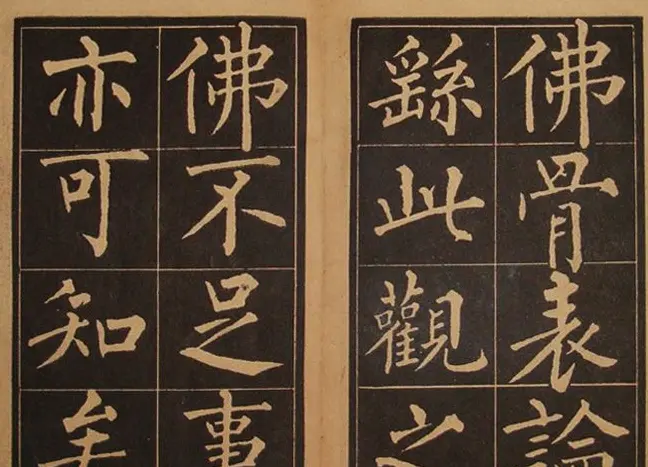 佛骨表論
繇此觀之
佛不足事
亦可知矣